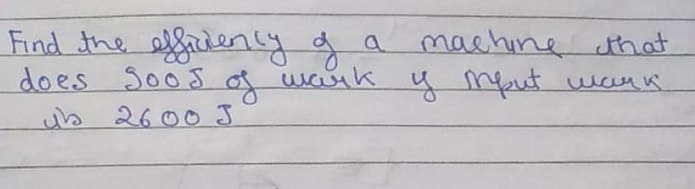 Find the efficiency of a machine that
does 900J of work if input work
is 2600 J